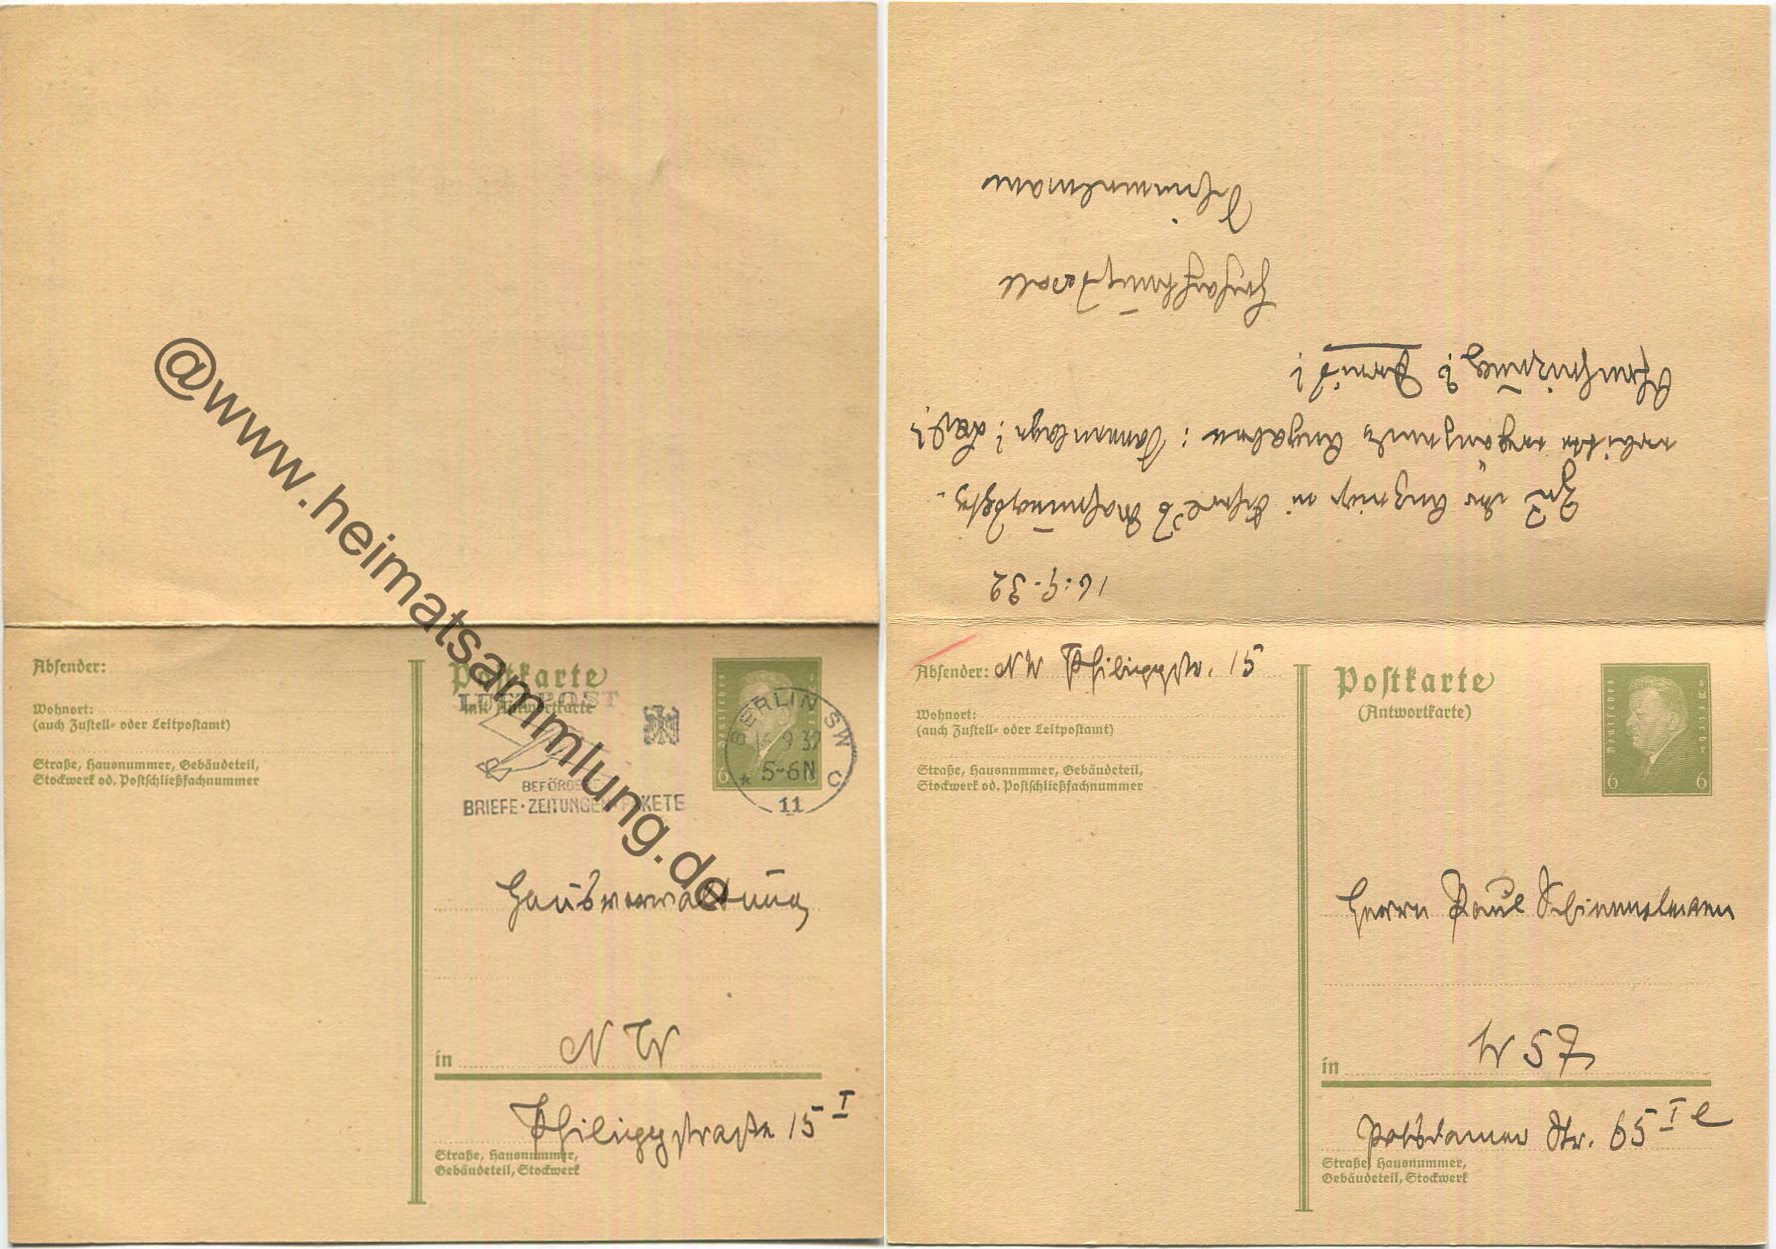 Absender:
Wohnort:
(auch Zustell- oder Leitpostamt)
Straße, Hausnummer, Gebäudeteil,
Stockwerk od. Postschließfachnummer
Postkarte
mit Antwortkarte
LUFTPOST
BEFÖRDERT
BRIEFE·ZEITUNGEN·PAKETE
Deutsches
6
BERLIN SW
16 9 32
5-6N
* 11 C
Hausverwaltung
in NW
Philippstraße 15 I
Straße, Hausnummer,
Gebäudeteil, Stockwerk
@www.heimatsammlung.de
16.9.32
Zu der Anzeige in
erbitte ergänzende Angaben:
Hochachtungsvoll
Schimmelmann
Absender: NW Philippstr. 15
Wohnort:
(auch Zustell- oder Leitpostamt)
Straße, Hausnummer, Gebäudeteil,
Stockwerk od. Postschließfachnummer
Postkarte
(Antwortkarte)
Deutsches Reich
6 6
Herrn Paul Schimmelmann
in W 57
Potsdamer Str. 65 I
Straße, Hausnummer,
Gebäudeteil, Stockwerk